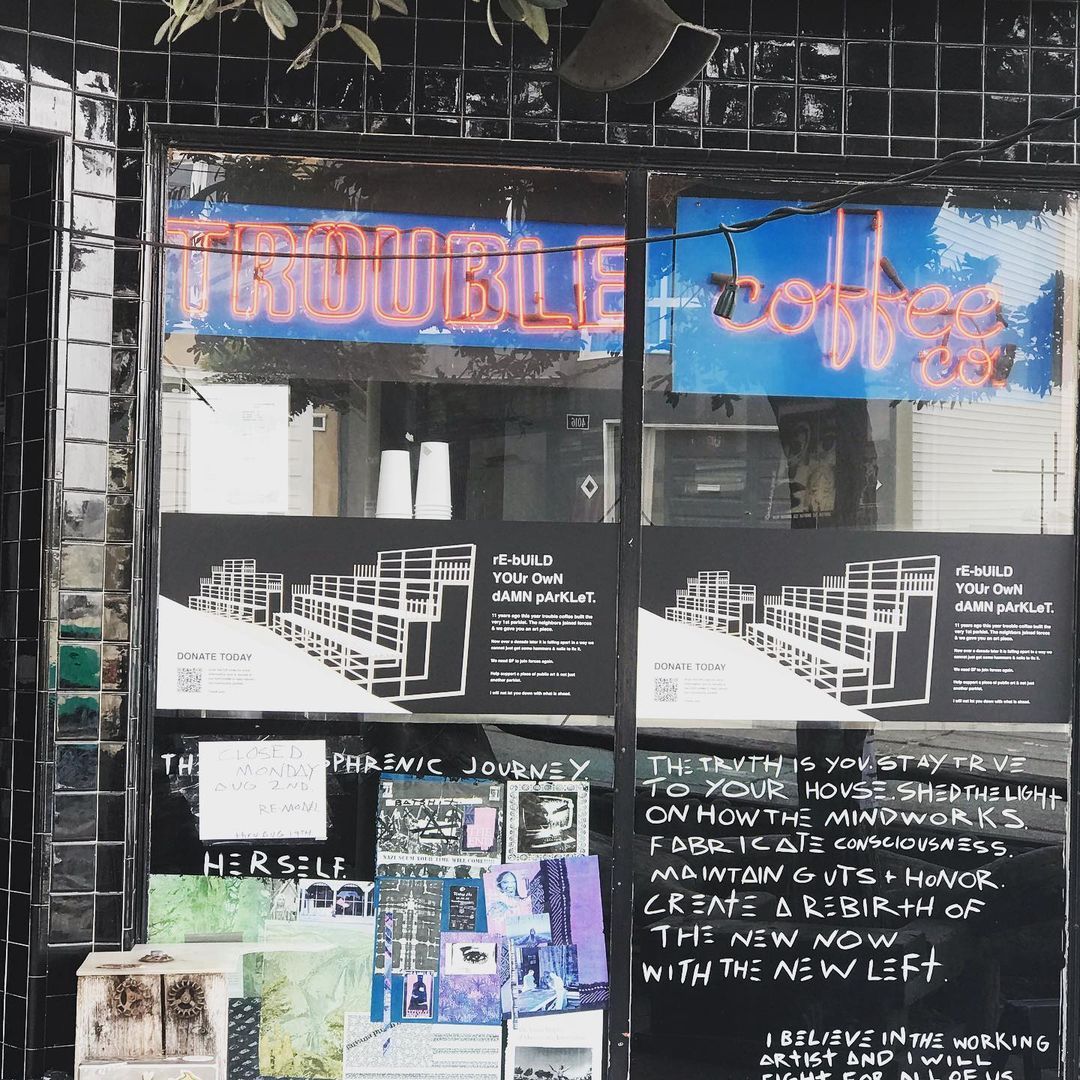 TROUBLE
coffee
co.
4016
rE-bUiLD
YOUr OwN
dAMN pArKLeT.
11 years ago this year trouble coffee built the
very 1st parklet. The neighbors joined forces
& we gave you an art piece.
Now over a decade later it is falling apart in a way we
cannot just get some hammers & nails to fix it.
We need SF to join forces again.
Help support a piece of public art & not just
another parklet.
I will not let you down with what is ahead.
DONATE TODAY
rE-bUiLD
YOUr OwN
dAMN pArKLeT.
11 years ago this year trouble coffee built the
very 1st parklet. The neighbors joined forces
& we gave you an art piece.
Now over a decade later it is falling apart in a way we
cannot just get some hammers & nails to fix it.
We need SF to join forces again.
Help support a piece of public art & not just
another parklet.
I will not let you down with what is ahead.
DONATE TODAY
JOURNEY
CLOSED
MONDAY
AUG 2ND.
REMODEL
thru AUG 19TH
HERSELF.
NAZI SCUM YOUR TIME WILL COME
THE TRUTH IS YOU. STAY TRUE
TO YOUR HOUSE. SHED THE LIGHT
ON HOW THE MIND WORKS.
FABRICATE CONSCIOUSNESS.
MAINTAIN GUTS + HONOR.
CREATE A REBIRTH OF
THE NEW NOW
WITH THE NEW LEFT.
I BELIEVE IN THE WORKING
ARTIST AND I WILL
FIGHT FOR ALL OF US